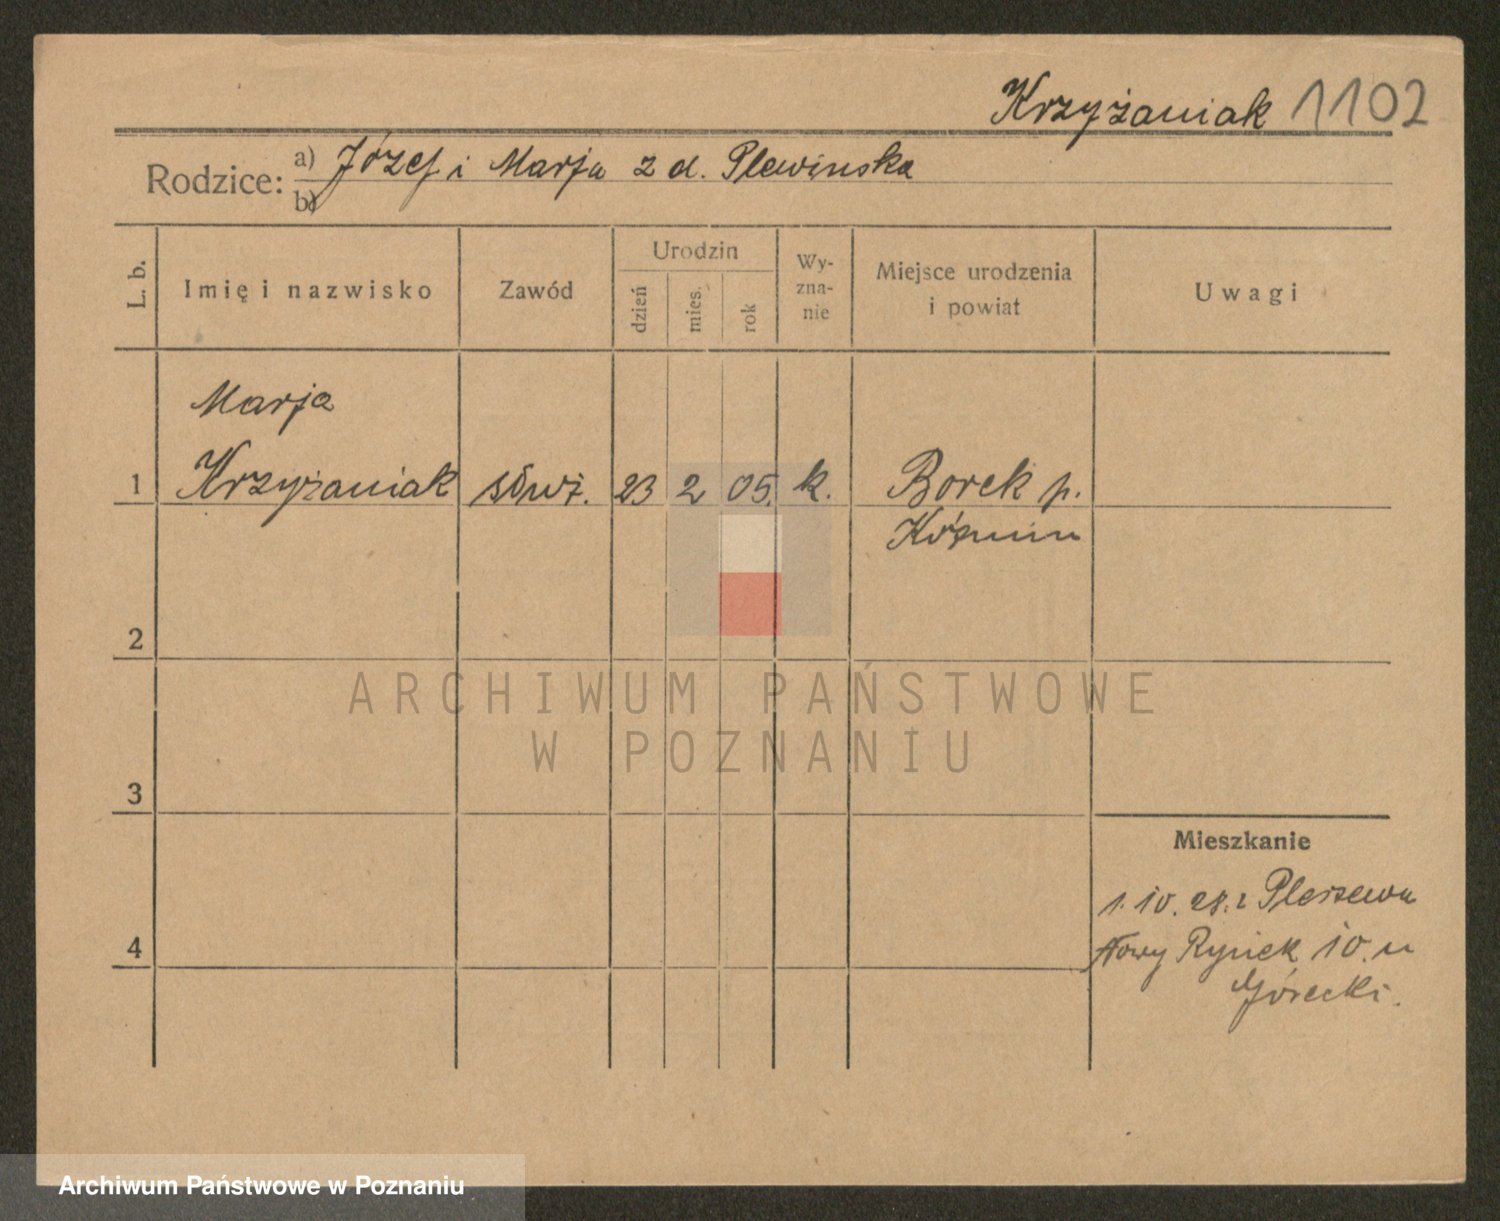 Krzyżaniak 1102
Rodzice: a) Józef i Marja z d. Plewinska
b)
L. b.
Imię i nazwisko
Zawód
Urodzin
dzień
mies.
rok
Wy-
zna-
nie
Miejsce urodzenia
i powiat
Uwagi
Marja
1 Krzyżaniak służ. 23 2 05. k. Borek p.
Koźmin
2
ARCHIWUM PAŃSTWOWE
W POZNANIU
3
Mieszkanie
1. 10. 28. z Pleszewa
4 Nowy Rynek 10. u
Górecki.
Archiwum Państwowe w Poznaniu